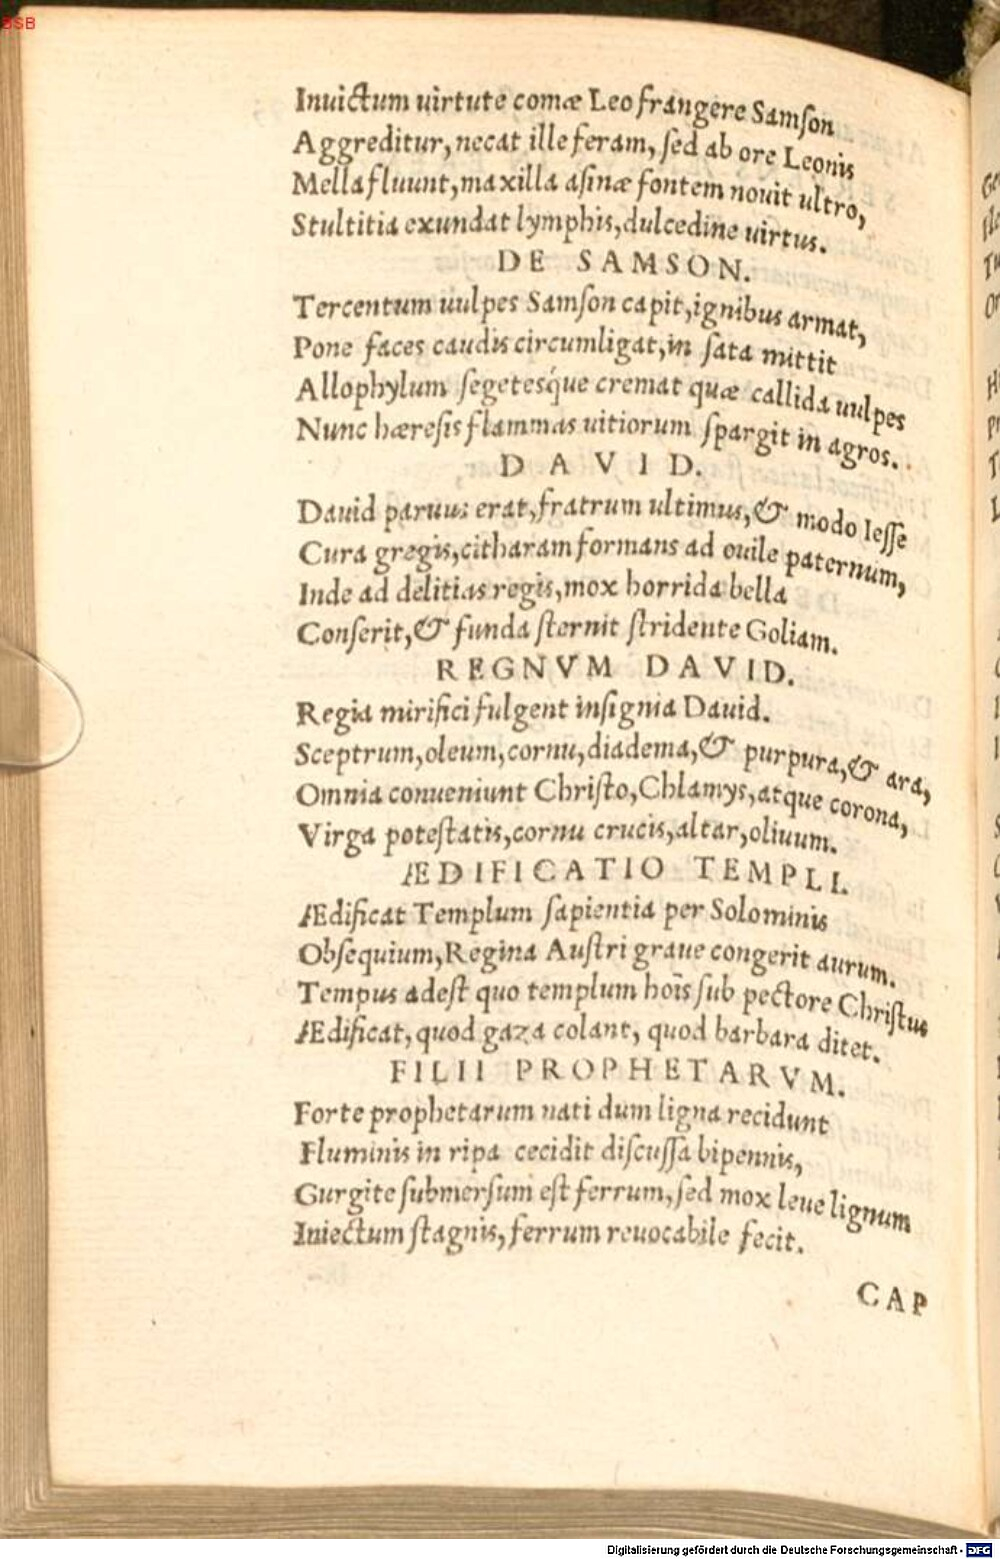 BSB
Inuictum uirtute comæ Leo frangere Samſon
Aggreditur, necat ille feram, ſed ab ore Leonis
Mella fluunt, maxilla aſinæ fontem nouit ultro,
Stultitia exundat lymphis, dulcedine uirtus.
DE SAMSON.
Tercentum uulpes Samſon capit, ignibus armat,
Pone faces caudis circumligat, in ſata mittit
Allophylum ſegetesq́ue cremat quæ callida uulpes
Nunc hæreſis flammas uitiorum ſpargit in agros.
DAVID.
Dauid paruus erat, fratrum ultimus, & modo Ieſſe
Cura gregis, citharam formans ad ouile paternum,
Inde ad delitias regis, mox horrida bella
Conſerit, & funda ſternit ſtridente Goliam.
REGNVM DAVID.
Regia mirifici fulgent inſignia Dauid.
Sceptrum, oleum, cornu, diadema, & purpura, & ara,
Omnia conueniunt Chriſto, Chlamys, atque corona,
Virga poteſtatis, cornu crucis, altar, oliuum.
ÆDIFICATIO TEMPLI.
Ædificat Templum ſapientia per Solominis
Obſequium, Regina Auſtri graue congerit aurum.
Tempus adeſt quo templum hoı̄s ſub pectore Chriſtus
Ædificat, quod gaza colant, quod barbara ditet.
FILII PROPHETARVM.
Forte prophetarum nati dum ligna recidunt
Fluminis in ripa cecidit diſcuſſa bipennis,
Gurgite ſubmerſum eſt ferrum, ſed mox leue lignum
Iniectum ſtagnis, ferrum reuocabile fecit.
CAP
Digitalisierung gefördert durch die Deutsche Forschungsgemeinschaft - DFG